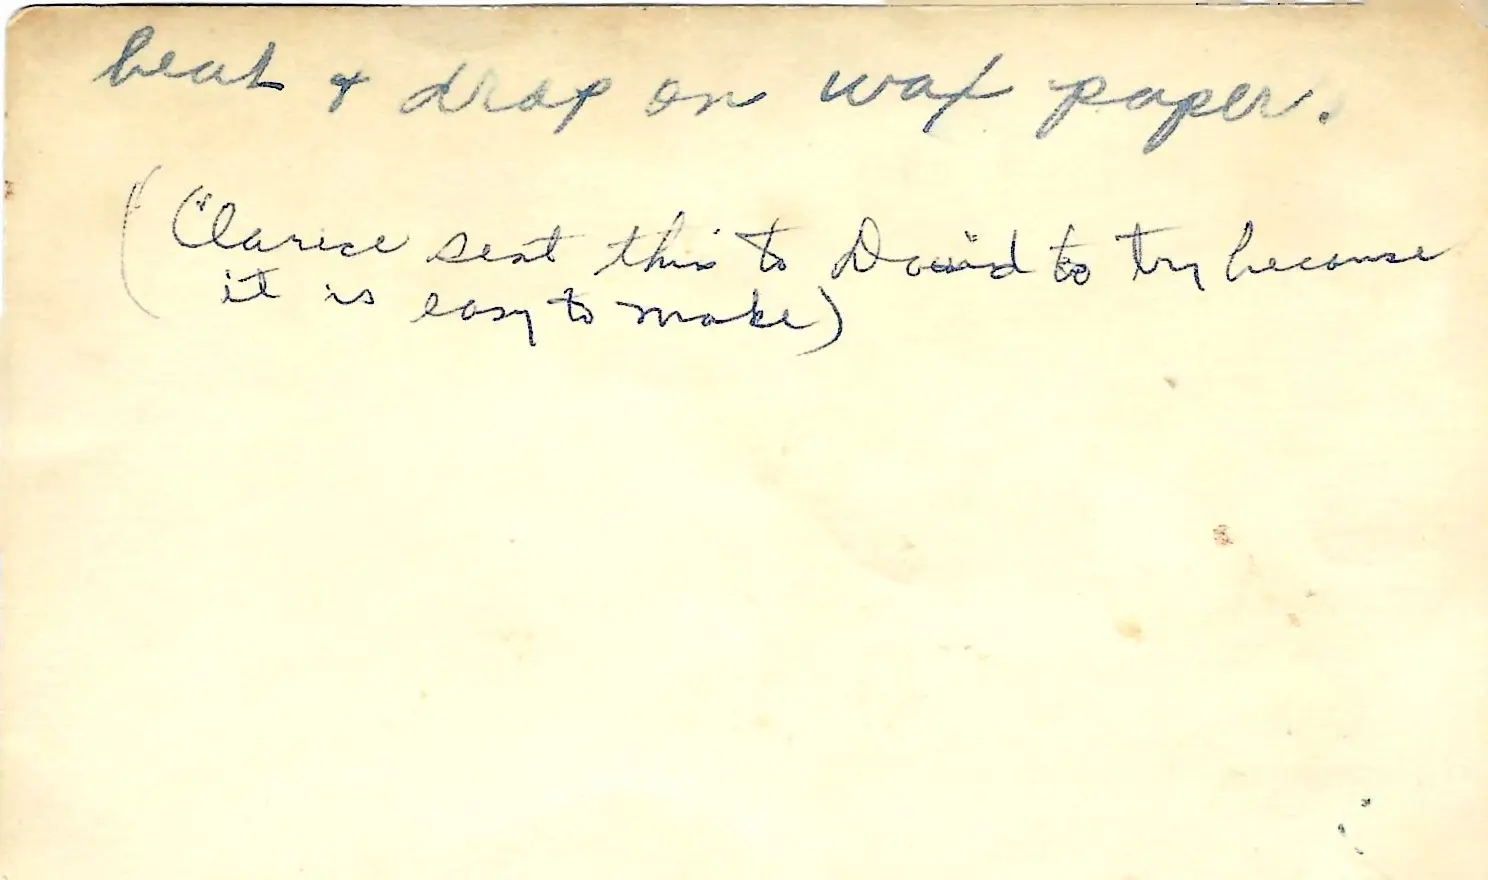 beat & drop on wax paper.
(Clarice sent this to David to try because
it is easy to make)